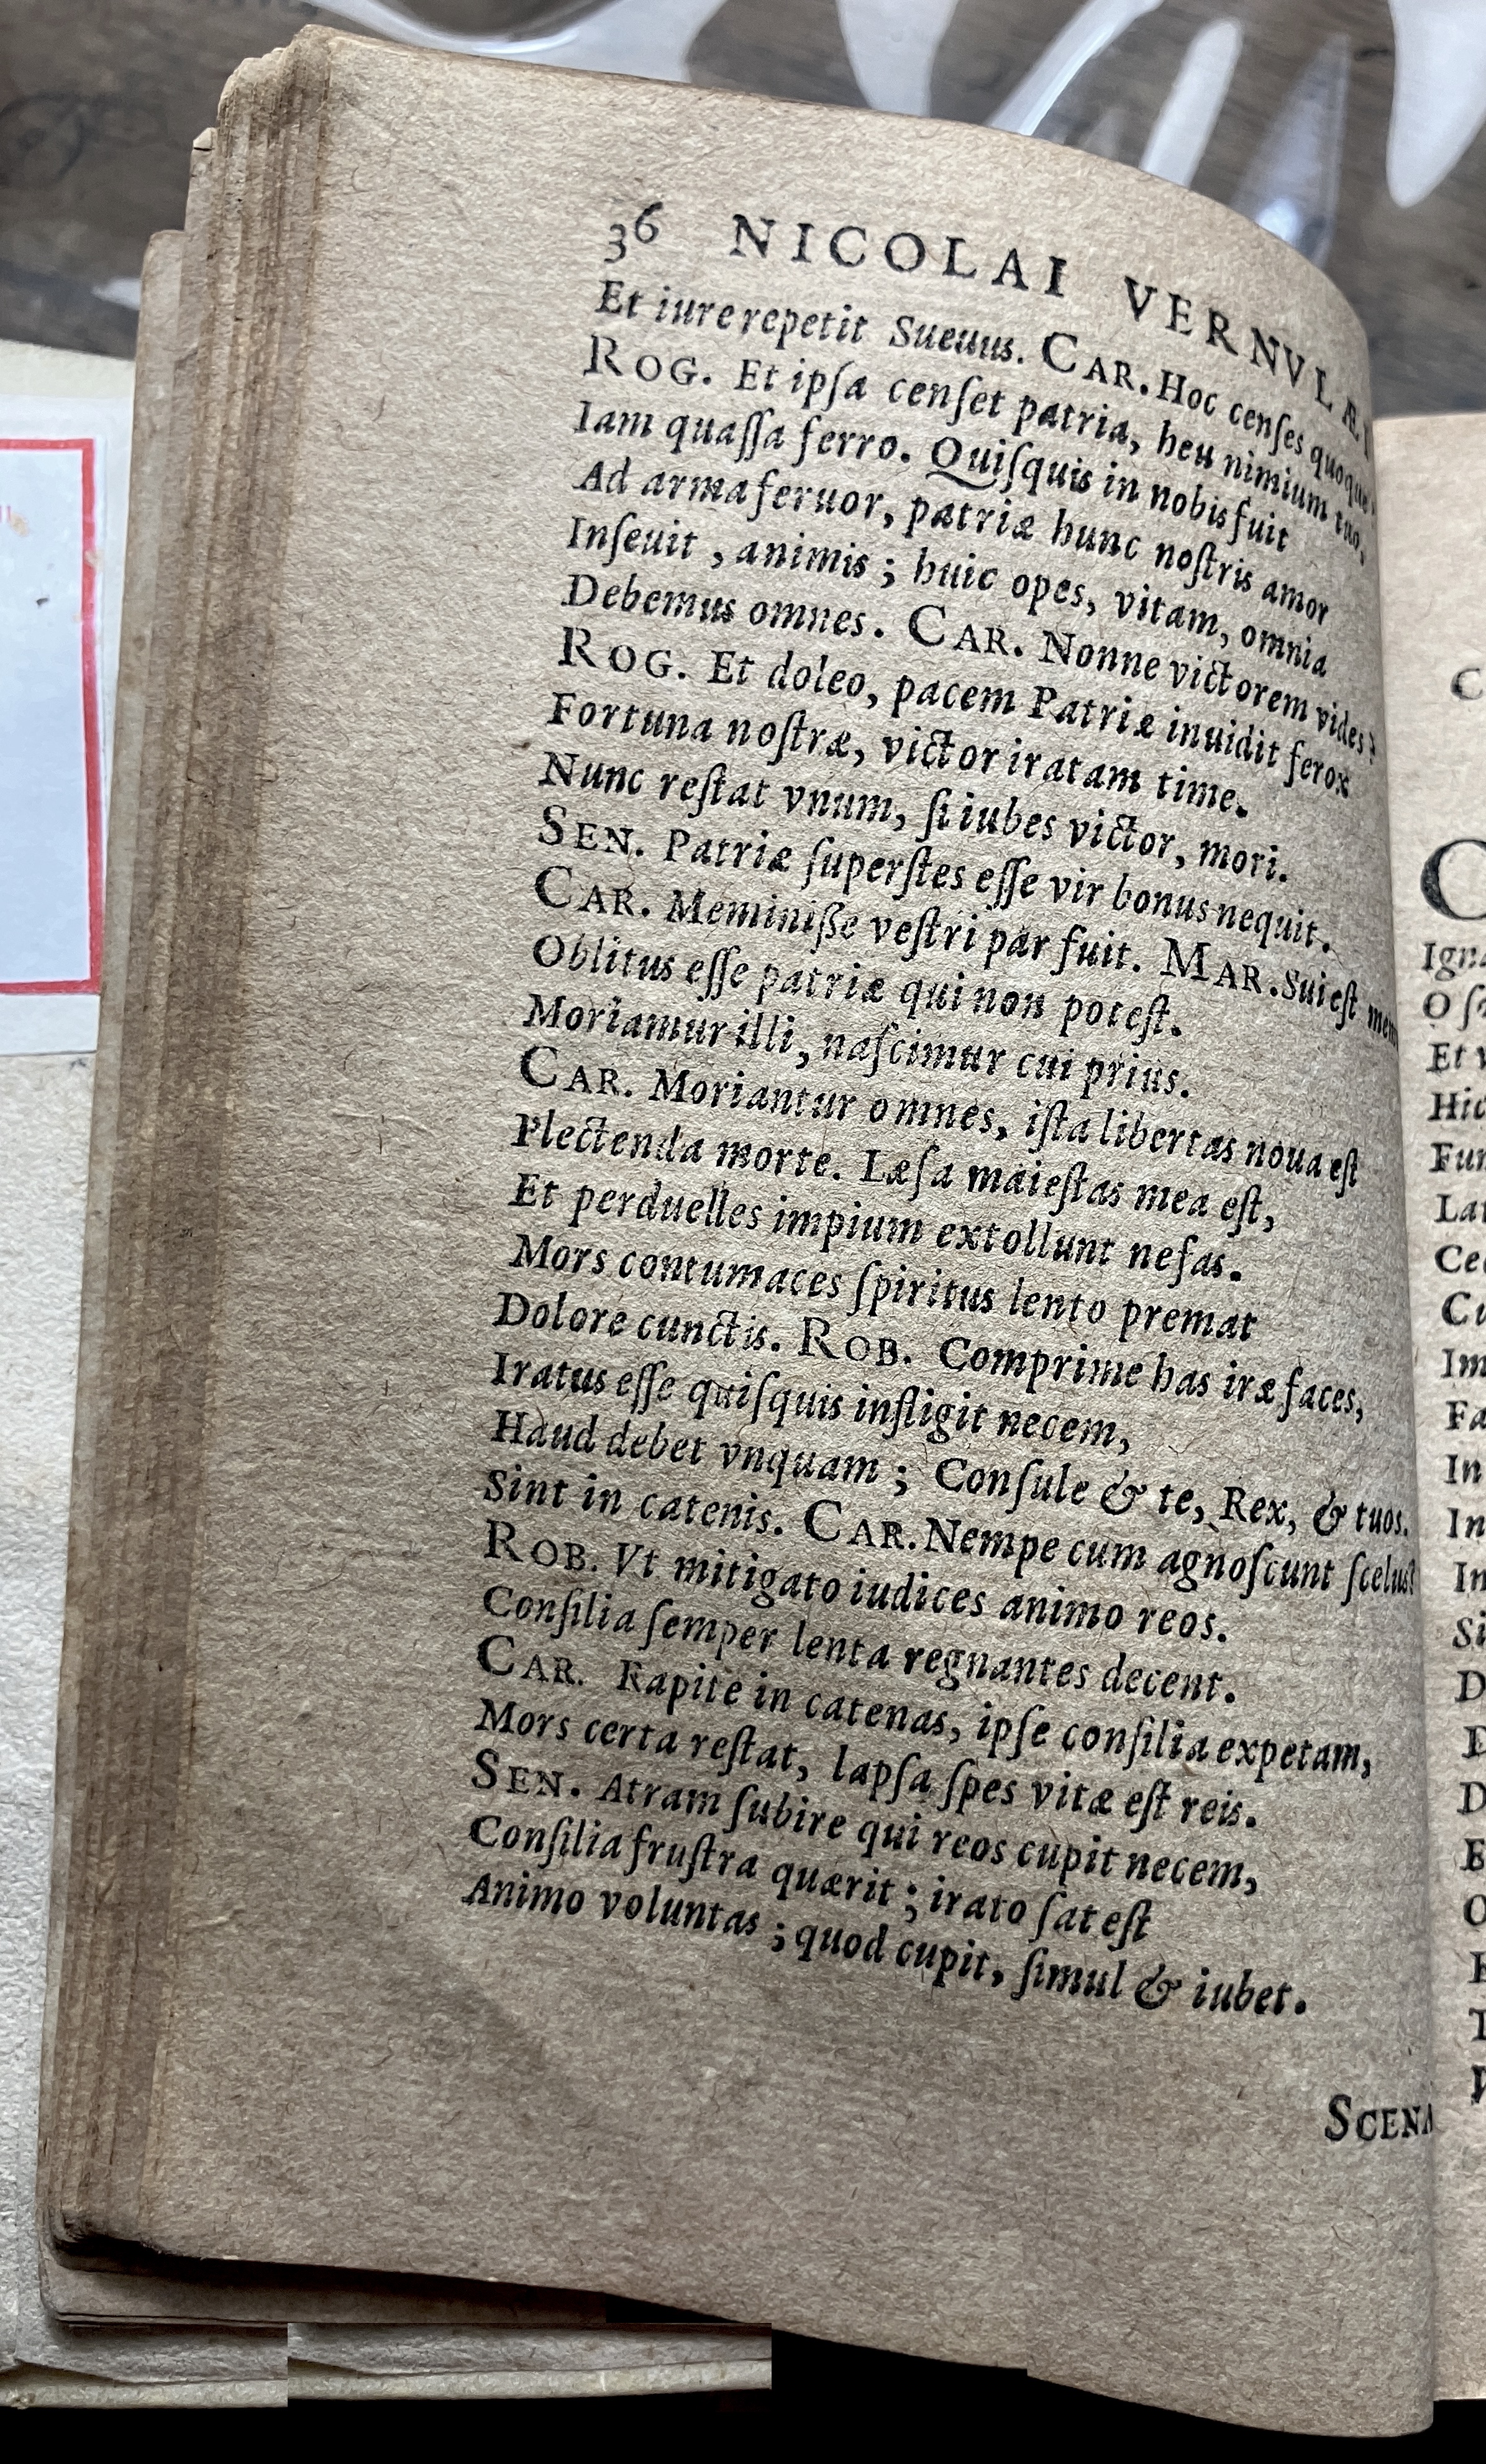 36 NICOLAI VERNVLÆI
Et iure repetit Sueuus. CAR. Hoc censes quoque?
ROG. Et ipſa cenſet patria, heu nimium tuo,
Iam quaſſa ferro. Quiſquis in nobis fuit
Ad arma feruor, patriæ hunc noſtris amor
Inſeuit, animis; huic opes, vitam, omnia
Debemus omnes. CAR. Nonne victorem vides?
ROG. Et doleo, pacem Patriæ inuidit ferox
Fortuna noſtræ, victor iratam time.
Nunc reſtat vnum, ſi iubes victor, mori.
SEN. Patriæ ſuperſtes eſſe vir bonus nequit.
CAR. Meminiße veſtri par fuit. MAR. Sui eſt
Oblitus eſſe patriæ qui non poteſt.
Moriamur illi, naſcimur cui prius.
CAR. Moriantur omnes, iſta libertas noua eſt
Plectenda morte. Læſa maieſtas mea eſt,
Et perduelles impium extollunt nefas.
Mors contumaces ſpiritus lento premat
Dolore cunctis. ROB. Comprime has iræ faces,
Iratus eſſe quiſquis infligit necem,
Haud debet vnquam; Conſule & te, Rex, & tuos.
Sint in catenis. CAR. Nempe cum agnoſcunt ſcelus?
ROB. Vt mitigato iudices animo reos.
Conſilia ſemper lenta regnantes decent.
CAR. Rapite in catenas, ipſe conſilia expetam,
Mors certa reſtat, lapſa ſpes vitæ eſt reis.
SEN. Atram ſubire qui reos cupit necem,
Conſilia fruſtra quærit; irato ſat eſt
Animo voluntas; quod cupit, ſimul & iubet.
SCENA
Et
In
In